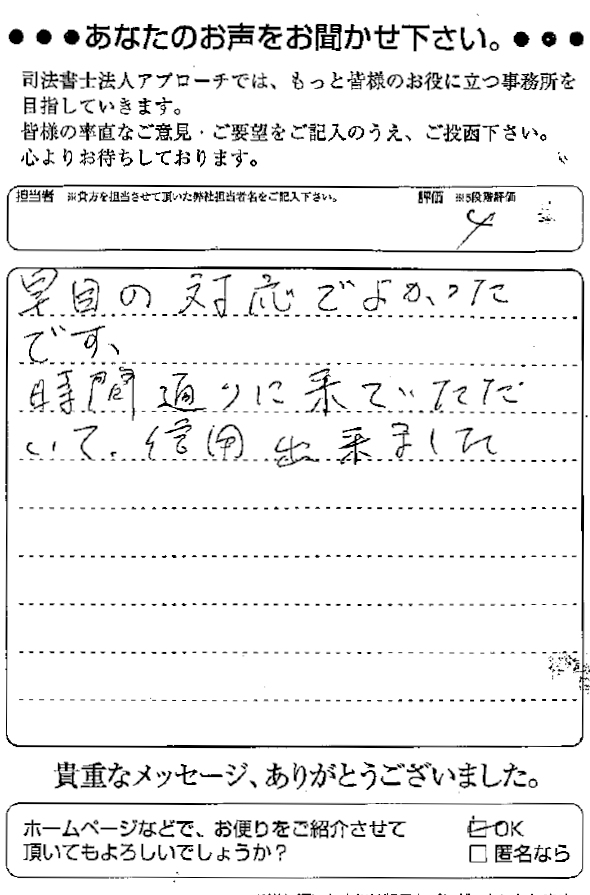 ●●●あなたのお声をお聞かせ下さい。●●●
司法書士法人アプローチでは、もっと皆様のお役に立つ事務所を
目指していきます。
皆様の率直なご意見・ご要望をご記入のうえ、ご投函下さい。
心よりお待ちしております。
担当者 ※貴方を担当させて頂いた弊社担当者名をご記入下さい。 評価 ※5段階評価
4
早目の対応でよかった
です、
時間通りに来ていただ
いて、信用出来ました
貴重なメッセージ、ありがとうございました。
ホームページなどで、お便りをご紹介させて
頂いてもよろしいでしょうか?
OK
□ 匿名なら